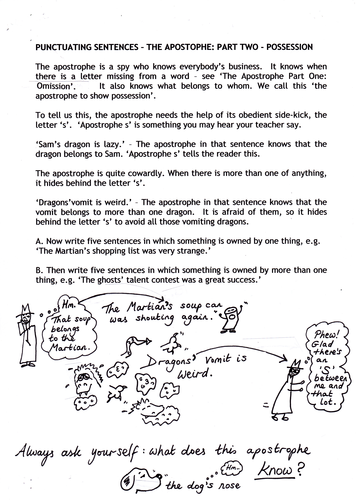 PUNCTUATING SENTENCES - THE APOSTOPHE: PART TWO - POSSESSION
The apostrophe is a spy who knows everybody's business. It knows when
there is a letter missing from a word - see 'The Apostrophe Part One:
Omission'. It also knows what belongs to whom. We call this 'the
apostrophe to show possession'.
To tell us this, the apostrophe needs the help of its obedient side-kick, the
letter 's'. 'Apostrophe s' is something you may hear your teacher say.
'Sam's dragon is lazy.' - The apostrophe in that sentence knows that the
dragon belongs to Sam. 'Apostrophe s' tells the reader this.
The apostrophe is quite cowardly. When there is more than one of anything,
it hides behind the letter 's'.
'Dragons'vomit is weird.' - The apostrophe in that sentence knows that the
vomit belongs to more than one dragon. It is afraid of them, so it hides
behind the letter 's' to avoid all those vomiting dragons.
A. Now write five sentences in which something is owned by one thing, e.g.
'The Martian's shopping list was very strange.'
B. Then write five sentences in which something is owned by more than one
thing, e.g. 'The ghosts' talent contest was a great success.'
Hm.
That soup
belongs
to the
Martian.
The Martian's soup can
was shouting again.
Dragons' vomit is
weird.
Phew!
Glad
there's
an
'S'
between
me and
that
lot.
Always ask yourself: what does this apostrophe
know?
Hm.
the dog's nose